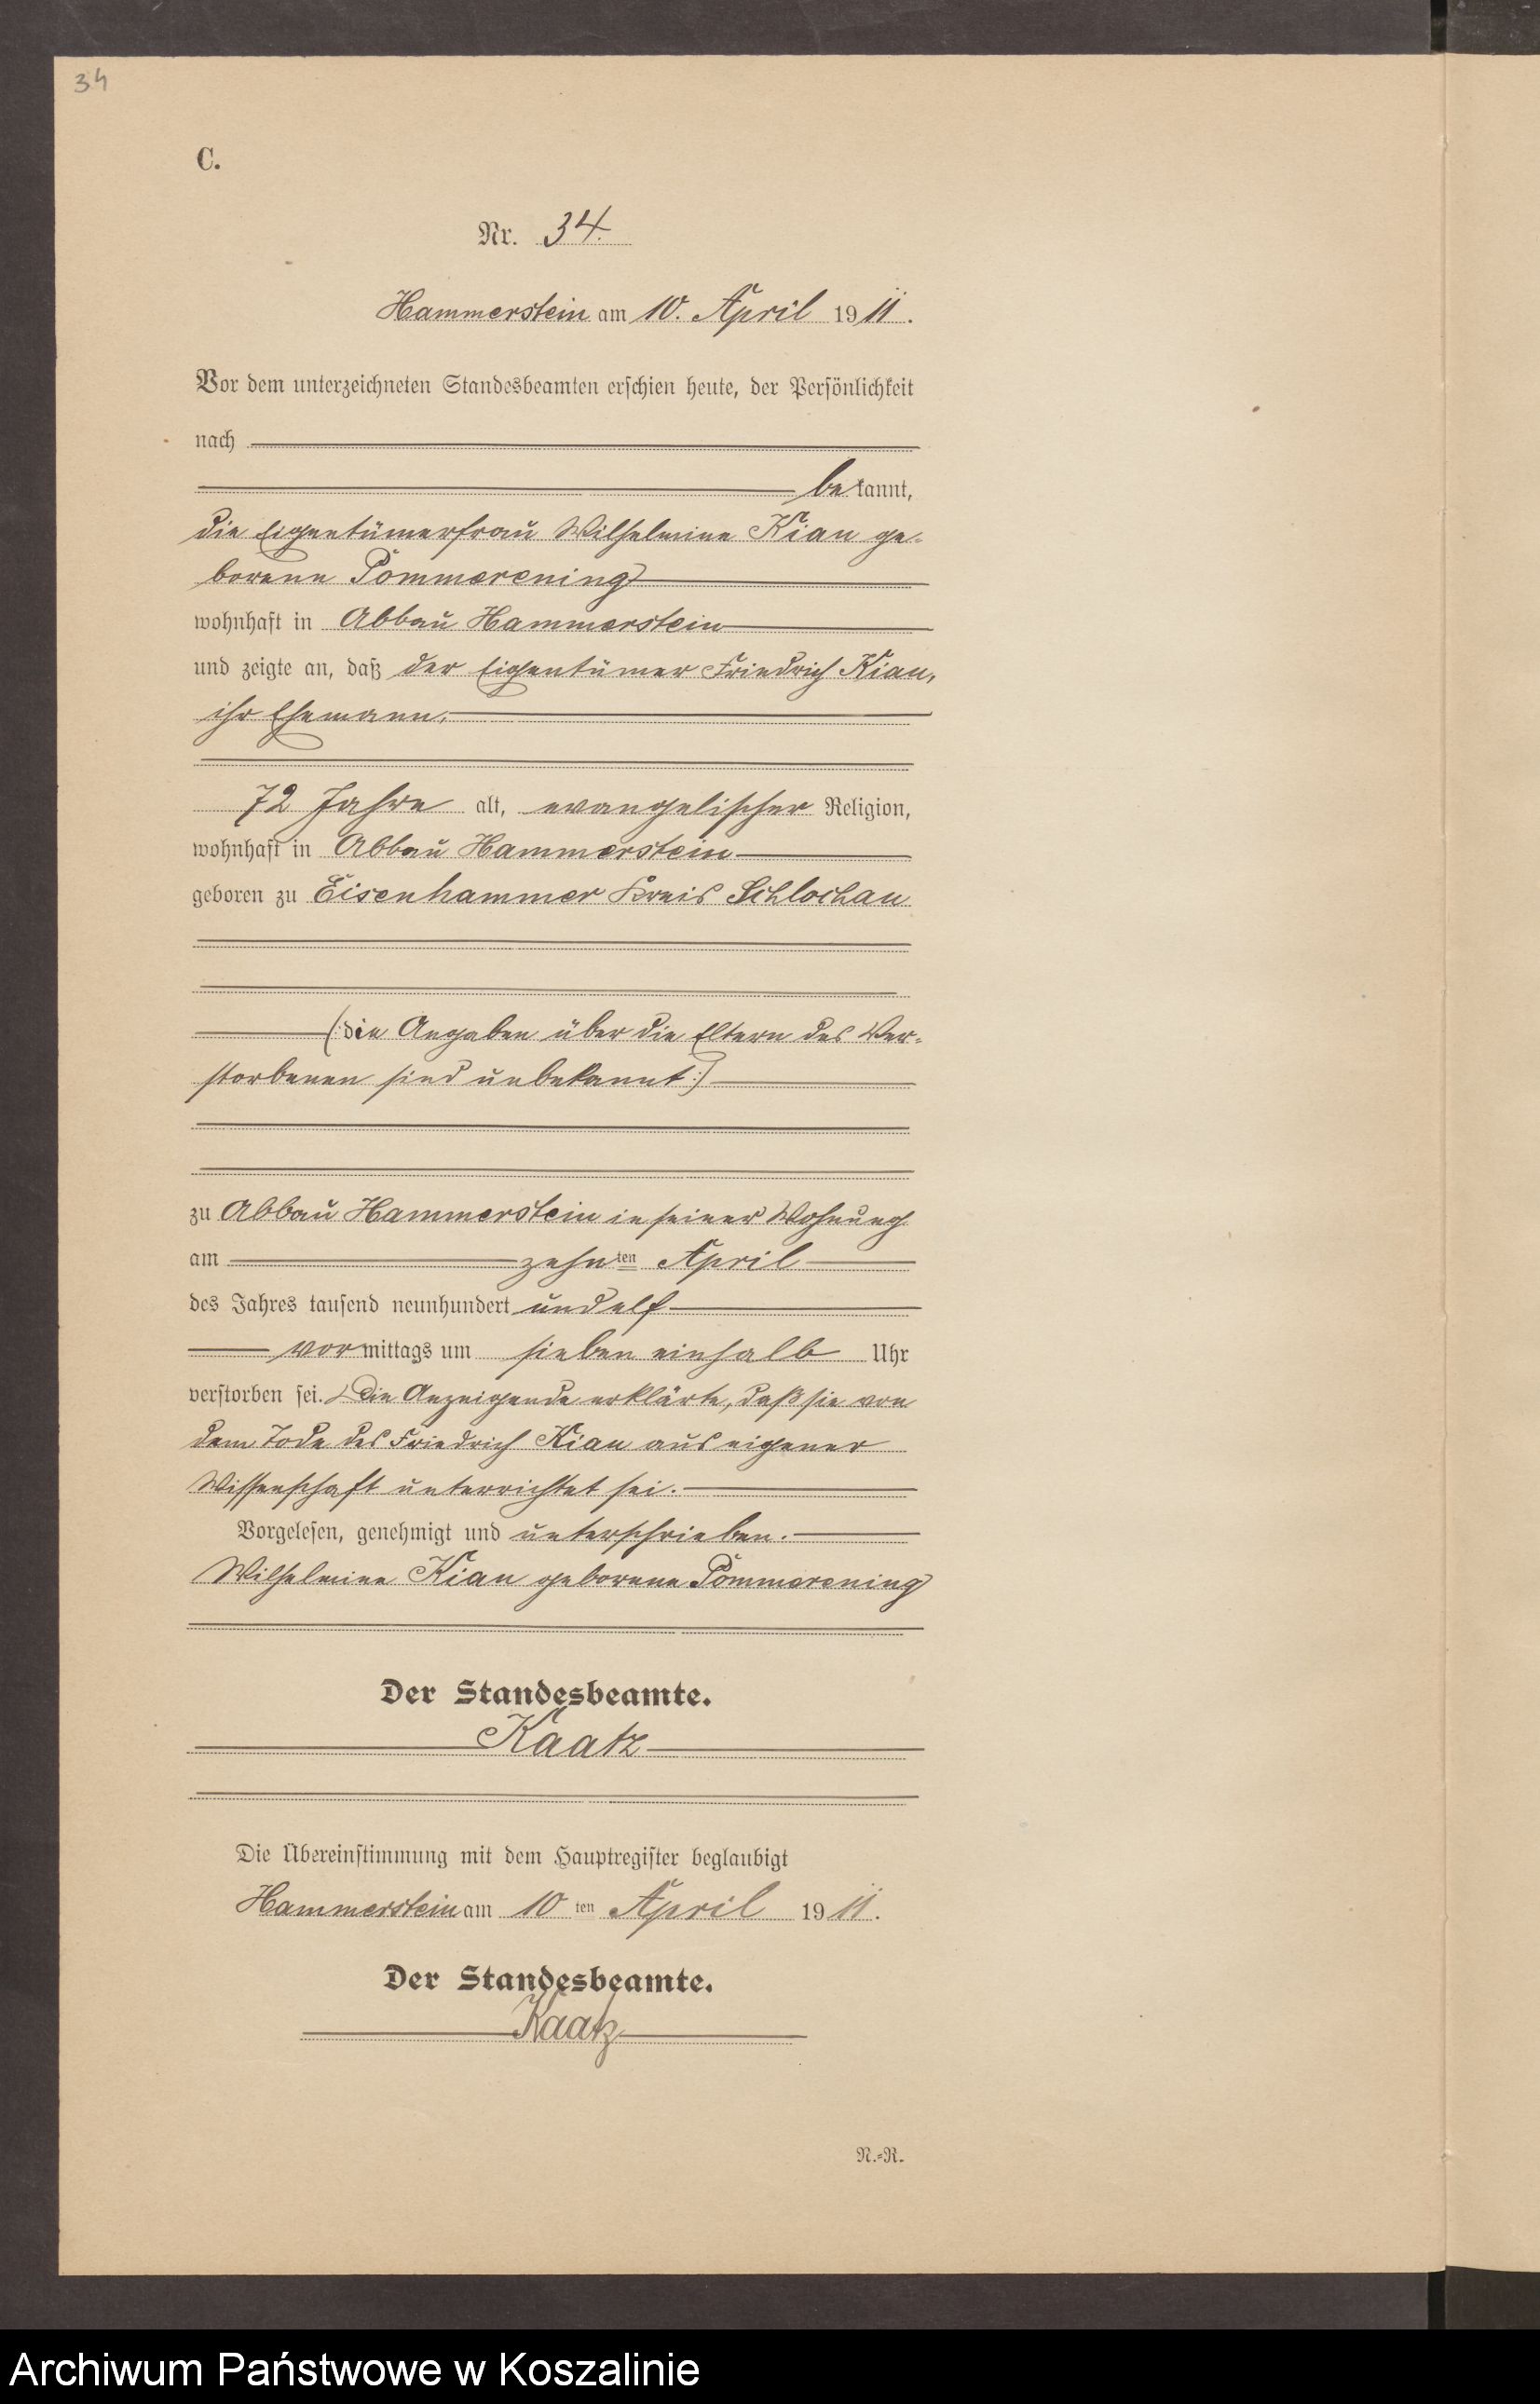 34
C.
Nr. 34.
Hammerstein am 10. April 1911.
Vor dem unterzeichneten Standesbeamten erschien heute, der Persönlichkeit
nach
bekannt,
die Eigentümerfrau Wilhelmine Kian ge-
borene Pommerening
wohnhaft in Abbau Hammerstein
und zeigte an, daß der Eigentümer Friedrich Kian,
ihr Ehemann,
72 Jahre alt, evangelischer Religion,
wohnhaft in Abbau Hammerstein
geboren zu Eisenhammer Kreis Schlochau
(:die Angaben über die Eltern des Ver-
storbenen sind unbekannt:)
zu Abbau Hammerstein in seiner Wohnung
am zehnten April
des Jahres tausend neunhundert und elf
vormittags um sieben einhalb Uhr
verstorben sei. Die Anzeigende erklärte, daß sie von
dem Tode des Friedrich Kian aus eigener
Wissenschaft unterrichtet sei.
Vorgelesen, genehmigt und unterschrieben.
Wilhelmine Kian geborene Pommerening
Der Standesbeamte.
Kaatz
Die Übereinstimmung mit dem Hauptregister beglaubigt
Hammerstein am 10ten April 1911.
Der Standesbeamte.
Kaatz
N.=R.
Archiwum Państwowe w Koszalinie